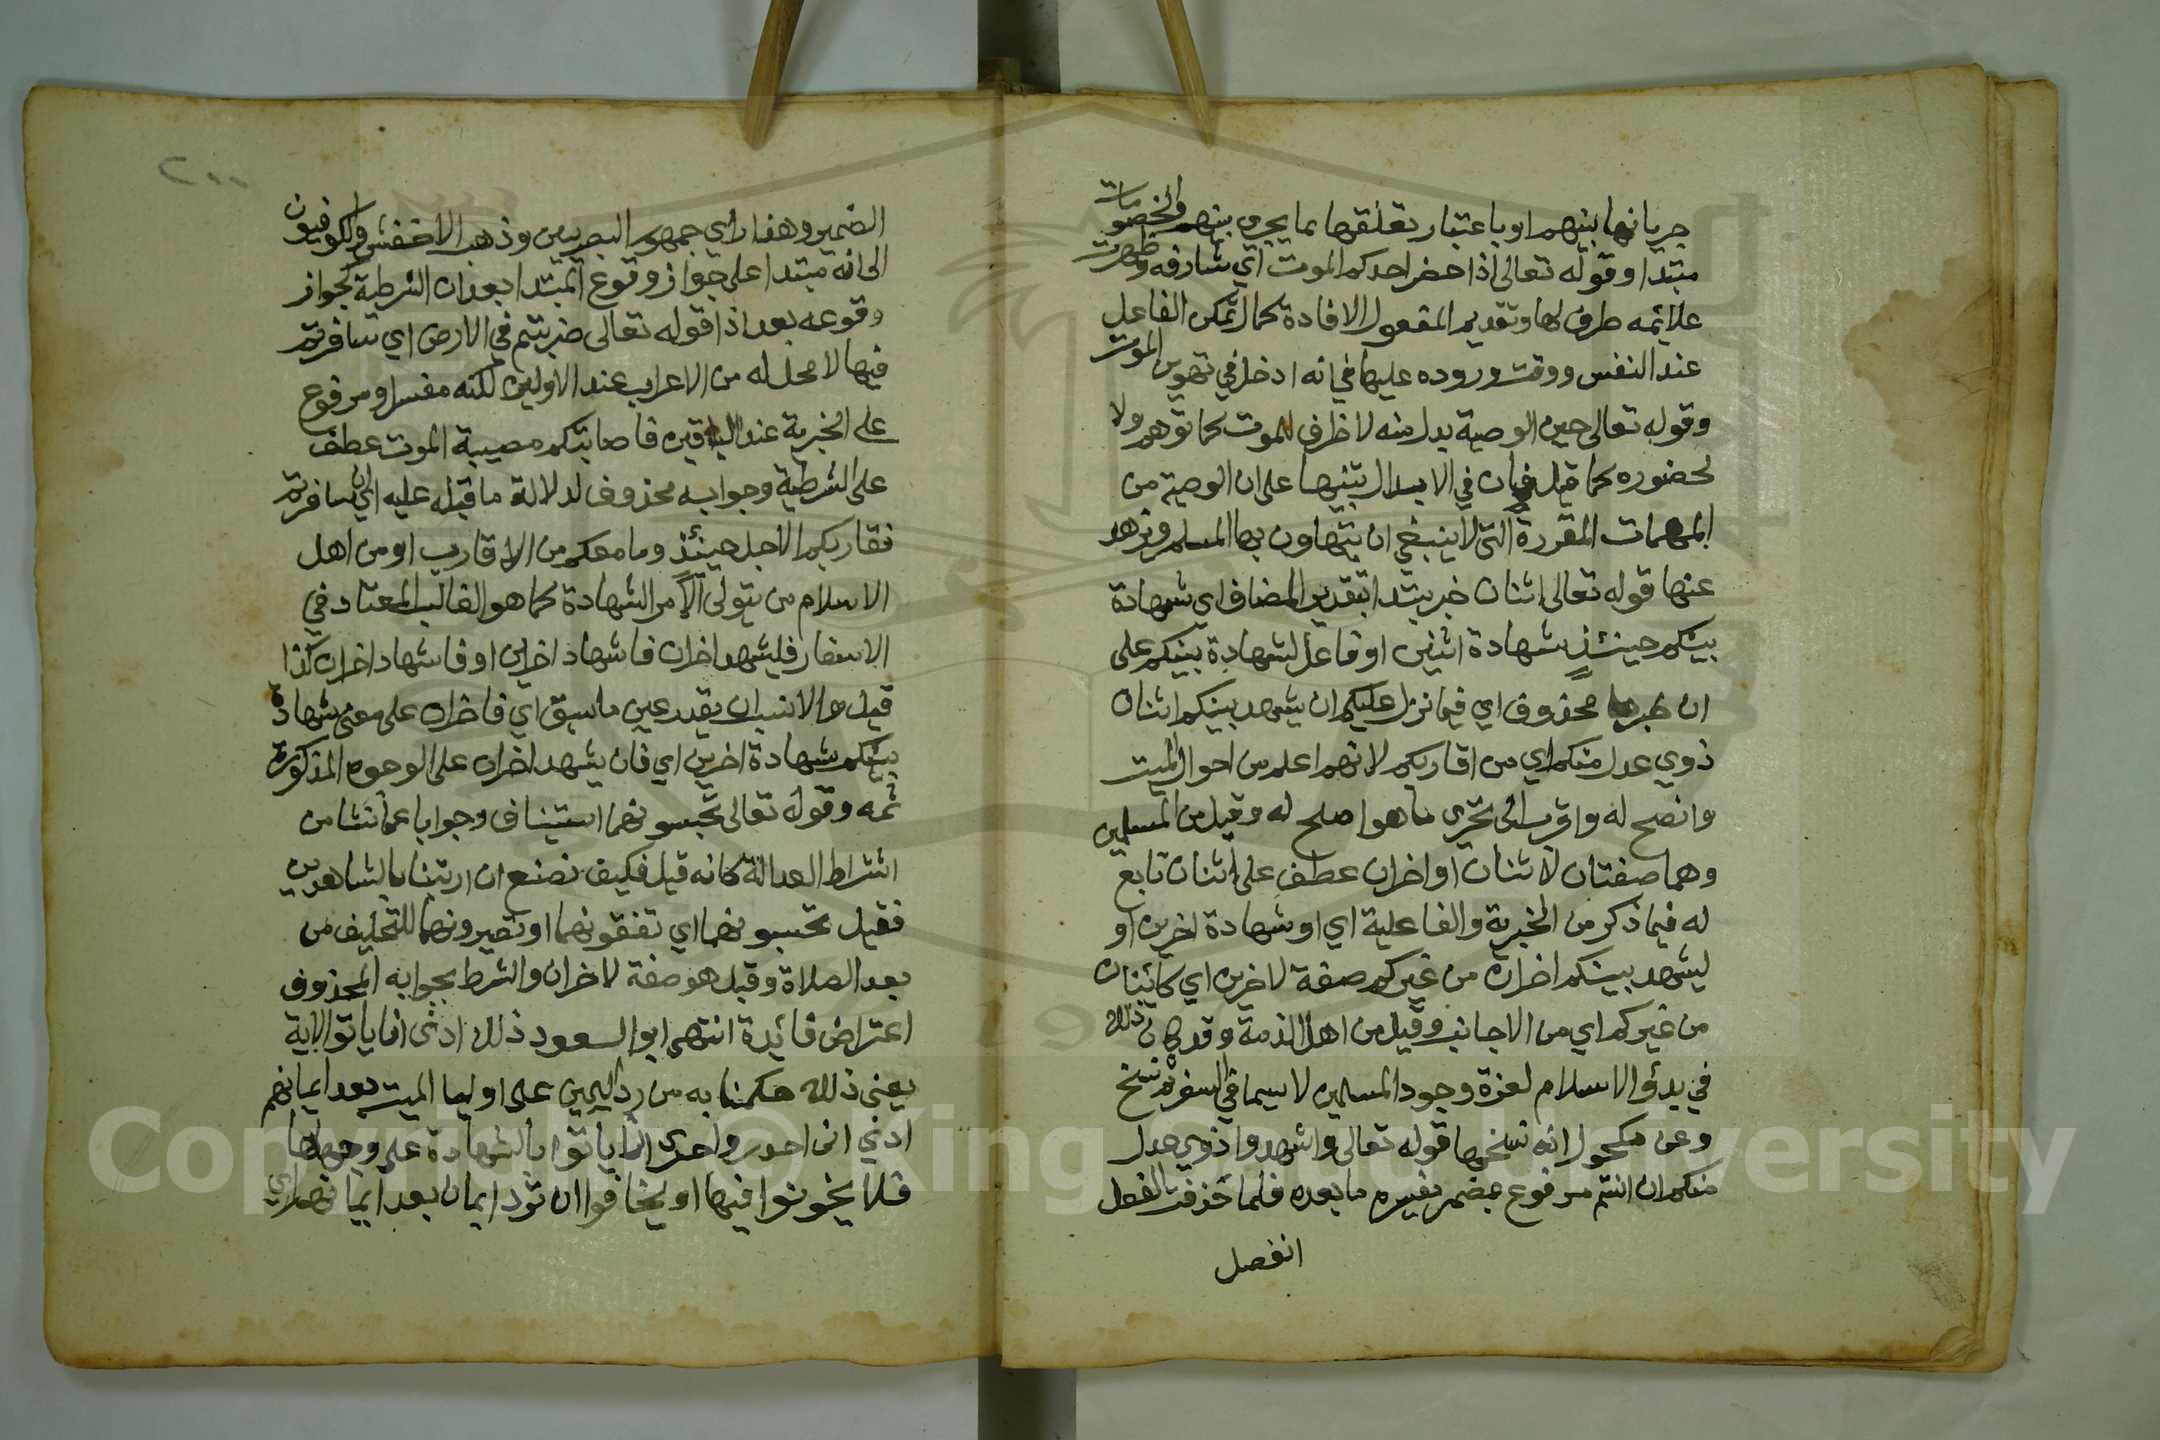 جريانها بينهم او باعتبار تعلقها بما يجري بينهم والخصومات
مبتدا وقوله تعالى اذا حضر احدكم الموت اي شارفه وظهرت
علائمه ظرف لها وتقديم المفعول لافادة كمال تمكن الفاعل
عند النفس ووقت وروده عليها فانه ادخل في تهوين الموت
وقوله تعالى حين الوصية بدل منه لا ظرف للموت كما توهم ولا
لحضوره كما قيل فان في الابدال تنبيها على ان الوصية من
المهمات المقررة التى لا ينبغي ان يتهاون بها المسلم ويذهد
عنها قوله تعالى اثنان خبر مبتدا بتقدير المضاف اي شهادة
بينكم حينئذ شهادة اثنين او فاعل شهادة بينكم على
ان خبرها محذوف اي فيما نزل عليكم ان يشهد بينكم اثنان
ذوي عدل منكم اي من اقاربكم لانهم اعلم من احوال الميت
وانصح له واقرب الى تحري ما هو اصلح له وقيل من المسلمين
وهما صفتان لاثنان او اخران عطف على اثنان تابع
له فيما ذكر من الخبرية والفاعلية اي او شهادة اخرين او
ليشهد بينكم اخران من غيركم صفة لاخرين اي كائنان
من غيركم اي من الاجانب وقيل من اهل الذمة وقد كان ذلك
في بدؤ الاسلام لعزة وجود المسلمين لا سيما في السفر ثم نسخ
وعن مكحول انه نسخها قوله تعالى واشهدوا ذوي عدل
منكم ان انتم مرفوع بمضمر يفسره ما بعده فلما حذفت الفعل
انفصل
٢٠٠
الضمير وهذا راي جمهور البصريين وذهب الاخفش والكوفيون
الى انه مبتدا على جواز وقوع المبتدا بعد ان الشرطية كجواز
وقوعه بعد اذا قوله تعالى ضربتم في الارض اي سافرتم
فيها لا محل له من الاعراب عند الاولين لكنه مفسر ومرفوع
على الخبرية عند الباقين فاصابتكم مصيبة الموت عطف
على الشرطية وجوابه محذوف لدلالة ما قبله عليه اي ان سافرتم
فقاربكم الاجل حينئذ وما معكم من الاقارب او من اهل
الاسلام من يتولى امر الشهادة كما هو الغالب المعتاد في
الاسفار فليشهد اخران فاشهاد اخرين او فاشهاد اخران كذا
قيل والانسب ان يقدر عين ما سبق اي فاخران على معنى شهادة
بينكم شهادة اخرين اي فان يشهد اخران على الوجوه المذكورة
ثمه وقوله تعالى تحبسونهما استيناف وجوابا عما نشا من
اشتراط العدالة كانه قيل فكيف نصنع ان ارتبنا بالشاهدين
فقيل تحبسونهما اي تقفونهما او تصبرونهما للتحليف من
بعد الصلاة وقيل هو صفة لاخران والشرط بجوابه المحذوف
اعتراض فائدة انتهى ابو السعود ذلك ادنى ان ياتوا الاية
يعنى ذلك حكمنا به من رد اليمين على اوليا الميت بعد ايمانهم
ادنى اى احدر واحرى ان ياتوا بالشهادة على وجهها
فلا يخونوا فيها او يخافوا ان ترد ايمان بعد ايمانهم اي
Copyright © King Saud University